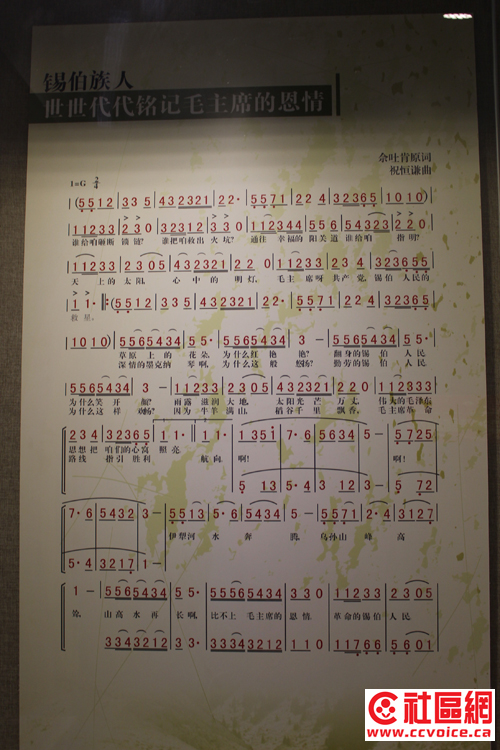 锡伯族人
世世代代铭记毛主席的恩情
佘吐肯原词
祝恒谦曲
1=G 2/4
(5512 335 432321 22· 5571 224 32365 1010)
112233 2330 112312 330 112344 555 2343 112233
谁给咱砸断 锁链? 谁把咱救出 火坑? 通往 幸福的 阳关道 谁给咱 指明?
112233 2305 432321 220 112233 555 432365
天上的太阳, 心中的 明灯, 毛主席呀 共产党, 锡伯 人民的
11· :(5512 335 432321 22· 5571 224 32365
救星,
1010) 5565434 55· 5565434 3- 5565434 55·
草原上的 花朵, 为什么红 艳艳? 翻身的锡伯 人民
深情的墨克纳 琴啊, 为什么这般 悠扬? 勤劳的锡伯 人民
5565434 3- 223305 432321 223305 2- 112833
为什么笑 开 颜? 雨露 滋润 大地, 太阳光 芒 万 丈, 伟大的毛泽东
为什么这样 欢畅? 因为 牛羊 满山, 稻谷千 里 飘香, 毛主席革命
234 32365 11· :11· 1351 7·6 5634 5- 5725
思想把 咱们的心窝 照亮
路线 指引 胜利 航向. 啊! 啊!
5 13 5·4 3 12 3- 5 72
7·6 5432 3- 5513 5·6 5435 5- 5571 2·4 3127
伊犁河 水 奔 腾, 乌孙山 峰 高
5·4 3217 1-
1- 5565434 55· 5565434 330 112233 2305
耸, 山高水再 长啊, 比不上 毛主席的 恩情. 革命的锡伯 人民
3343212 33· 3343212 110 117766 5601